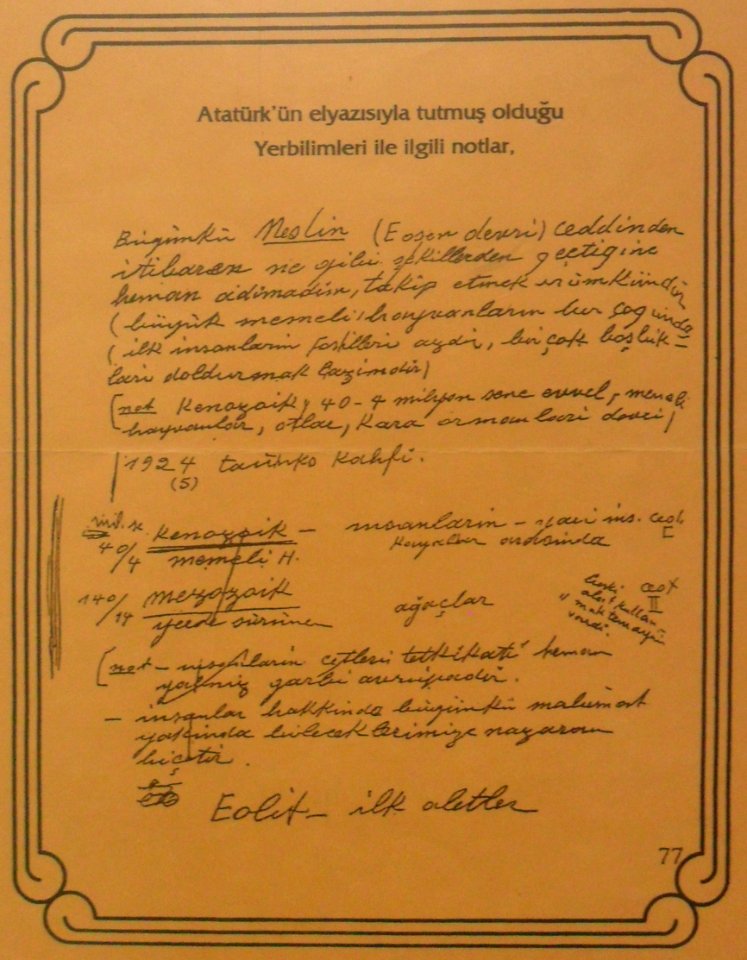 Atatürk'ün elyazısıyla tutmuş olduğu
Yerbilimleri ile ilgili notlar,
Bügünkü Neslin (Eosen devri) ceddinden
itibaren ne gibi şekillerden geçtigine
heman adimadim, takip etmek mümkündür
(büyük memeli hayvanların bir çoğunda
(ilk insanların fosilleri aydir, birçok boşluk-
lari doldurmak lazimdir)
[not Kenozoik, 40-4 milyon sene evvel, memeli
hayvanlar, otlar, Kara ormanlari devri)
1924
(5)
mil. se. Kenozoik — insanların - ins. ced.
40/4 memeli H. arasinda
140/14 mezozoik ağaçlar cet II
yerde sürünen
alet kullan-
[not - insanların cetleri tetkikati heman
yalniz garbi avrupadir.
- insanlar hakkinda bügünkü malumat
yakinda bileceklerimize nazaran
hiçtir.
Eolit - ilk aletler
77